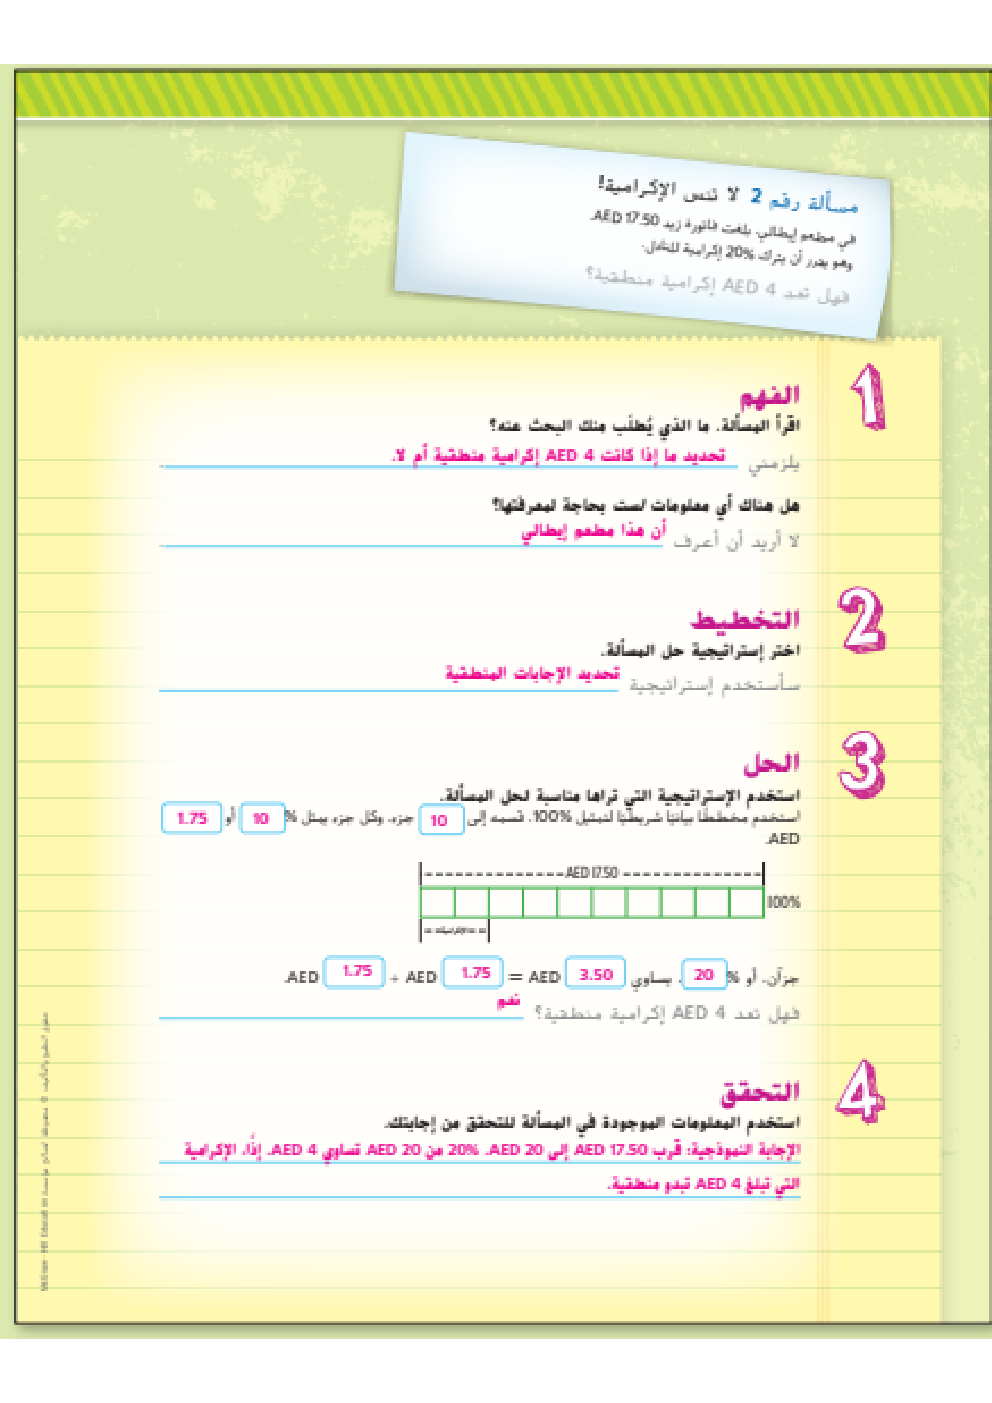 مسألة رقم 2 لا تنس الإكرامية!
في مطعم إيطالي، بلغت فاتورة زيد AED 17.50.
وهو يقرر أن يترك 20% إكرامية للنادل.
فهل تعد AED 4 إكرامية منطقية؟
1
الفهم
اقرأ المسألة. ما الذي يُطلَب منك البحث عنه؟
يلزمني تحديد ما إذا كانت AED 4 إكرامية منطقية أم لا.
هل هناك أي معلومات لست بحاجة لمعرفتها؟
لا أريد أن أعرف أن هذا مطعم إيطالي
2
التخطيط
اختر إستراتيجية حل المسألة.
سأستخدم إستراتيجية تحديد الإجابات المنطقية
3
الحل
استخدم الإستراتيجية التي تراها مناسبة لحل المسألة.
استخدم مخططًا بيانيًا شريطيًا لتمثيل 100%. قسمه إلى 10 جزء، وكل جزء يمثل 10% أو 1.75
AED.
AED 17.50
100%
الإكرامية
جزآن، أو 20%، يساوي AED 1.75 + AED 1.75 = AED 3.50.
فهل تعد AED 4 إكرامية منطقية؟ نعم
4
التحقق
استخدم المعلومات الموجودة في المسألة للتحقق من إجابتك.
الإجابة النموذجية: قرب AED 17.50 إلى AED 20. 20% من AED 20 تساوي AED 4. إذًا، الإكرامية
التي تبلغ AED 4 تبدو منطقية.